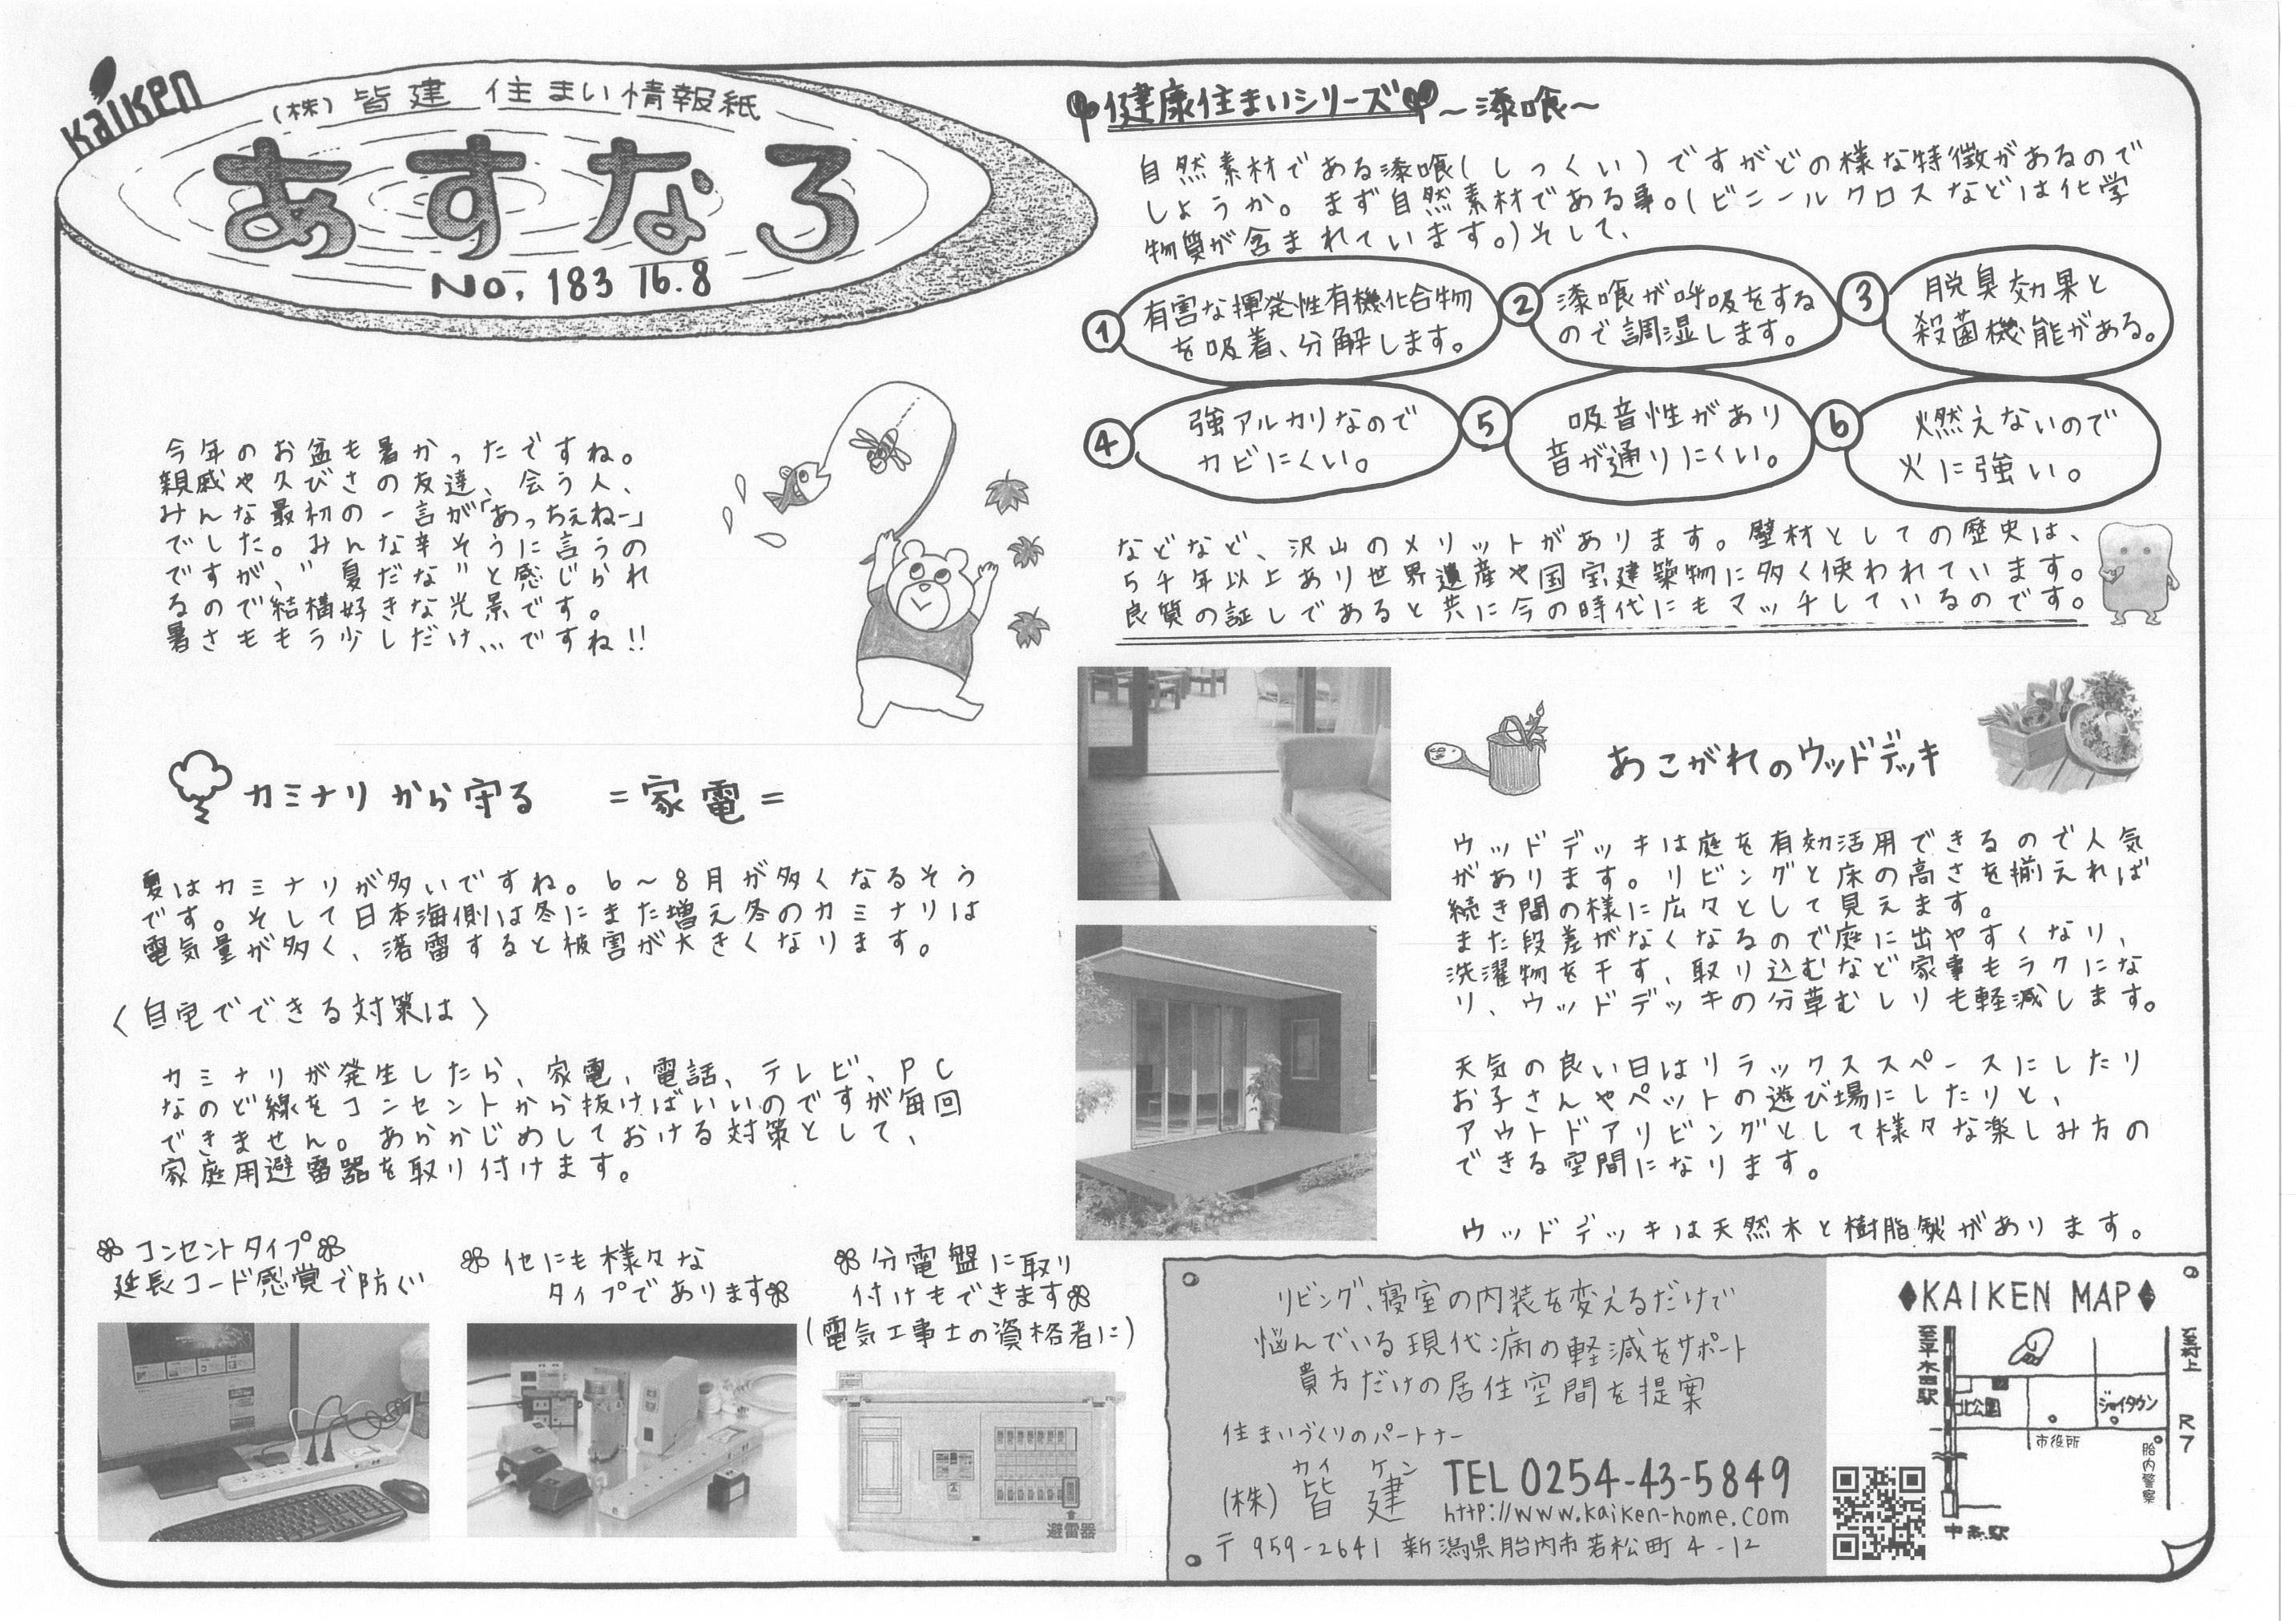 KAIKEN
(株)皆建 住まい情報紙
あすなろ
No, 183 16.8
今年のお盆も暑かったですね。
親戚や久びさの友達、会う人、
みんな最初の一言が「あっちぇねー」
でした。みんな辛そうに言うの
ですが、"夏だな"と感じられ
るので結構好きな光景です。
暑さももう少しだけ...ですね!!
カミナリから守る =家電=
夏はカミナリが多いですね。6〜8月が多くなるそう
です。そして日本海側は冬にまた増え冬のカミナリは
電気量が多く、落雷すると被害が大きくなります。
〈自宅でできる対策は〉
カミナリが発生したら、家電、電話、テレビ、PC
なのど線をコンセントから抜けばいいのですが毎回
できません。あらかじめしておける対策として、
家庭用避雷器を取り付けます。
コンセントタイプ
延長コード感覚で防ぐ
他にも様々な
タイプであります
分電盤に取り
付けもできます
(電気工事士の資格者に)
避雷器
健康住まいシリーズ 〜漆喰〜
自然素材である漆喰(しっくい)ですがどの様な特徴があるので
しょうか。まず自然素材である事。(ビニールクロスなどは化学
物質が含まれています。)そして、
① 有害な揮発性有機化合物
を吸着、分解します。
② 漆喰が呼吸をする
ので調湿します。
③ 脱臭効果と
殺菌機能がある。
④ 強アルカリなので
カビにくい。
⑤ 吸音性があり
音が通りにくい。
⑥ 燃えないので
火に強い。
などなど、沢山のメリットがあります。壁材としての歴史は、
5千年以上あり世界遺産や国宝建築物に多く使われています。
良質の証しであると共に今の時代にもマッチしているのです。
あこがれのウッドデッキ
ウッドデッキは庭を有効活用できるので人気
があります。リビングと床の高さを揃えれば
続き間の様に広々として見えます。
また段差がなくなるので庭に出やすくなり、
洗濯物を干す、取り込むなど家事もラクにな
り、ウッドデッキの分草むしりも軽減します。
天気の良い日はリラックススペースにしたり
お子さんやペットの遊び場にしたりと、
アウトドアリビングとして様々な楽しみ方の
できる空間になります。
ウッドデッキは天然木と樹脂製があります。
リビング、寝室の内装を変えるだけで
悩んでいる現代病の軽減をサポート
貴方だけの居住空間を提案
住まいづくりのパートナー
カイ ケン
(株) 皆 建 TEL 0254-43-5849
http://www.kaiken-home.com
〒959-2641 新潟県胎内市若松町4-12
♦KAIKEN MAP♦
至平木田駅
至村上
R7
北公園
ジョイタウン
市役所
胎内警察
中条駅